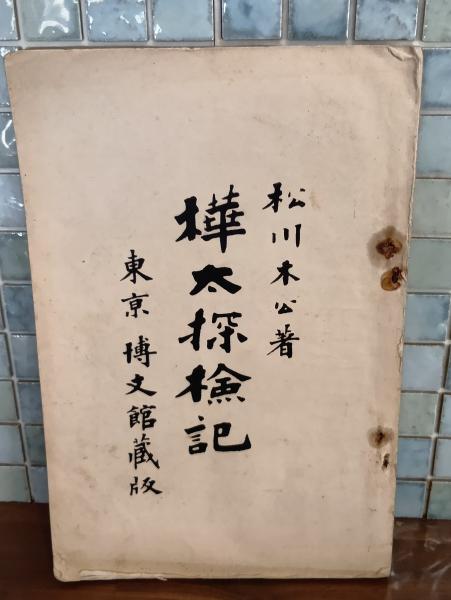 松川木公著
樺太探検記
東京 博文館蔵版